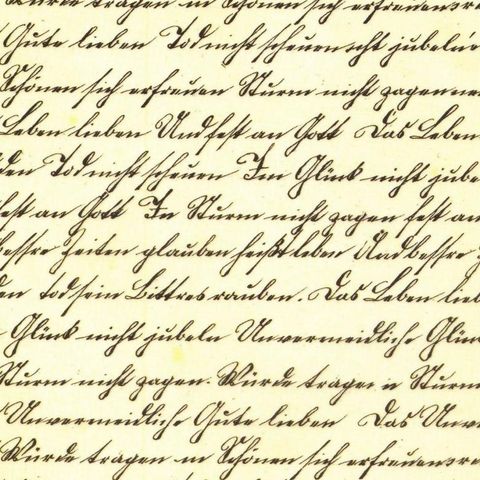 Würde tragen in Schönen sich erfreuen
Gute lieben Tod nicht scheuen cht jubeln
Schönen sich erfreuen Sturm nicht zagen
Leben lieben Und fest an Gott Das Leben
den Tod nicht scheuen Im Glück nicht jube
fest an Gott In Sturm nicht zagen fest an
bessre Zeiten glauben heißt leben Und bessre
den tod sein Bittres rauben. Das Leben lieb
Glück nicht jubeln Unvermeidliche Glüc
Sturm nicht zagen. Würde tragen n Sturm
Unvermeidliche Gute lieben Das Unve
Würde tragen in Schönen sich erfreuen